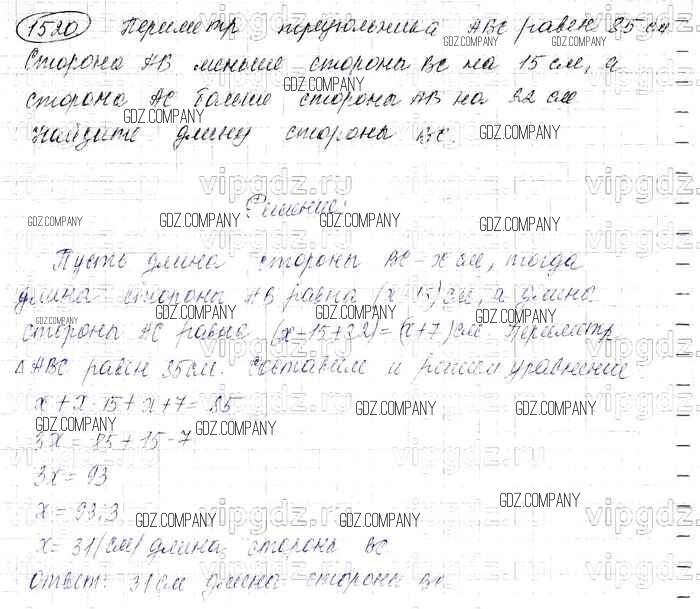 1520 Периметр треугольника ABC равен 85 см
Сторона AB меньше стороны BC на 15 см, а
сторона AC больше стороны AB на 22 см
Найдите длину стороны BC.
Решение:
Пусть длина стороны BC - x см, тогда
длина стороны AB равна (x-15) см, а длина
стороны AC равна (x-15+22)=(x+7) см. Периметр
△ABC равен 85 см. Составим и решим уравнение
x+x-15+x+7=85
3x=85+15-7
3x=93
x=93:3
x=31(см) длина стороны BC
Ответ: 31 см длина стороны BC
GDZ.COMPANY
vipgdz.ru